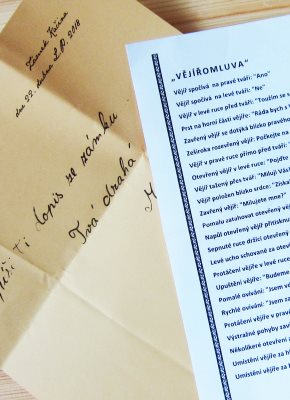 Zámek Kunín
dne 22. dubna L.P. 2018
Ti dopis ze zámku
Tvá drahá
„VĚJÍŘOMLUVA"
Vějíř spočívá na pravé tváři: "Ano"
Vějíř spočívá na levé tváři: "Ne"
Vějíř v levé ruce před tváří: "Toužím se s
Prst na horní části vějíře: "Ráda bych s
Zavřený vějíř se dotýká blízko pravého
Zeširoka rozevřený vějíř: Počkejte na
Vějíř v pravé ruce přímo před tváří: "
Otevřený vějíř v levé ruce: "Pojďte
Vějíř tažený přes tvář: "Miluji Vás!
Vějíř položen blízko srdce: "Získal
Zavřený vějíř: "Milujete mne?"
Pomalu zatahovat otevřený věj
Napůl otevřený vějíř přitisknu
Sepnuté ruce držící otevřený
Levé ucho schované za otev
Protáčení vějíře v levé ruce
Upuštění vějíře: "Budeme
Pomalé ovívání: "Jsem v
Rychlé ovívání: "Jsem za
Protáčení vějíře v pravé
Výstražné pohyby zav
Několikeré otevření a
Umístění vějíře za h
Umístění vějíře za